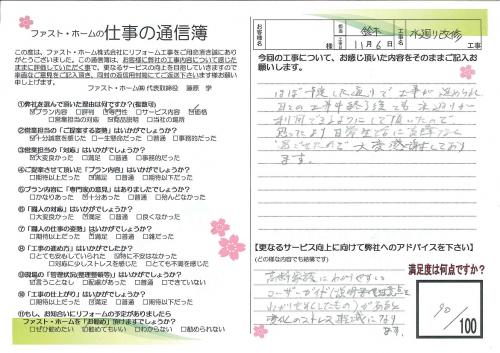 ファスト・ホームの仕事の通信簿
この度は、ファスト・ホーム株式会社にリフォーム工事をご用命頂き誠にあり
がとうございました。この通信簿は、お客様に弊社の工事内容について感じた
ままに評価していただく事で、更なるサービスの向上を目指していきますので
率直なご意見をご記入頂き、同封の返信用封筒にてご返送下さいます様お願い
申し上げます。
ファスト・ホーム㈱ 代表取締役 藤原 学
①弊社を選んで頂いた理由は何ですか?(複数可)
プラン内容 評判 専門性 サービス内容 価格
営業担当の対応 商品説明 当社の場所
②営業担当の「ご提案する姿勢」はいかがでしょうか?
十分誠意を感じた 一生懸命だった 普通 事務的だった
③営業担当の「対応」はいかがでしょうか?
大変良かった 満足 普通 事務的だった
④ご提案させて頂いた「プラン内容」はいかがでしたか?
期待以上だった 満足 普通 期待以下だった
⑤プラン内容に「専門家の意見」はありましたでしょうか?
かなりあった 十分あった 普通 殆んどなかった
⑥「職人の対応」はいかがでしょうか?
大変良かった 満足 普通 良くなかった
⑦「職人の仕事の姿勢」はいかがでしょうか?
期待以上だった 満足 普通 雑だった
⑧「工事の進め方」はいかがでしょうか?
とても安心していられた 特に不安はなかった
対応に少しストレスを感じた とても不備を感じた
⑨現場の「管理状況(整理整頓等)」はいかがでしょうか?
期待以上だった 満足 普通 期待以下だった
⑩「工事の仕上がり」はいかがでしょうか?
期待以上だった 満足 普通 期待以下だった
⑪もし、お知合いにリフォームの予定がありましたら
ファスト・ホームを「お勧め」頂けますでしょうか?
ぜひ勧めたい 勧めてもいい わからない 勧められない
鈴木 様 11月6日 水廻り改修 工事
今回の工事について、お感じ頂いた内容をそのままご記入お
願いします。
ほぼ予定した通りで工事が進められ
日々の工事終了後も水廻りが
利用できるようにして頂いたので
思ったより日常生活に支障なく
過ごせたので大変感謝しており
ます。
【更なるサービス向上に向けて弊社へのアドバイスを下さい】
(どの様な内容でも結構です)
高齢家族にわかりやすい
ユーザーガイド(説明書を注意点を
わかりやすくしたもの)があると
変化のストレス軽減になり
ます。
満足度は何点ですか?
90/100